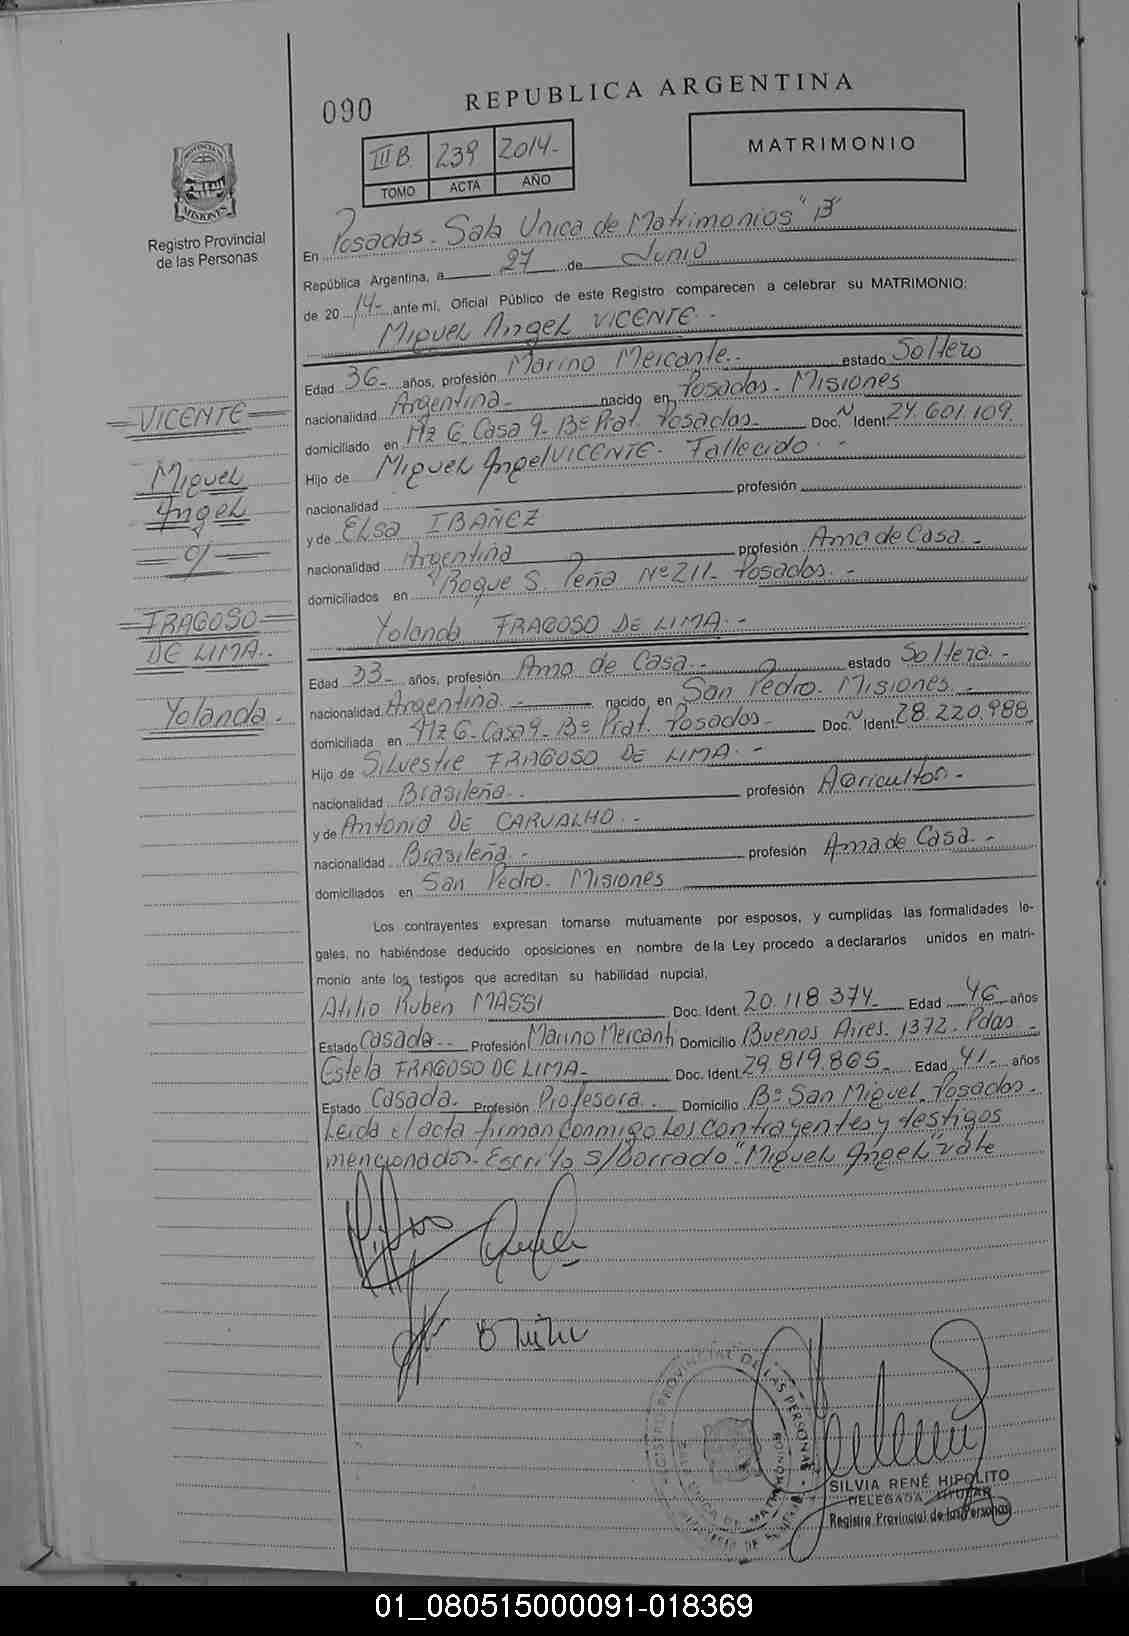 090
REPUBLICA ARGENTINA
III B. 239 2014-
TOMO ACTA AÑO
MATRIMONIO
PROVINCIA
MISIONES
Registro Provincial
de las Personas
En Posadas - Sala Unica de Matrimonios "B"
República Argentina, a 27 de Junio
de 2014- ante mí, Oficial Público de este Registro comparecen a celebrar su MATRIMONIO:
Miguel Angel VICENTE.-
Edad 36- años, profesión Marino Mercante.- estado Soltero
nacionalidad Argentina- nacido en Posadas - Misiones
domiciliado en Mz G Casa 9- Bº Prat. Posadas- Doc. N Ident. 24.601.109.
Hijo de Miguel Angel VICENTE. Fallecido.-
nacionalidad profesión
y de Elsa IBAÑEZ
nacionalidad Argentina profesión Ama de Casa.-
domiciliados en Roque S. Peña Nº 211- Posadas.-
Yolanda FRAGOSO DE LIMA.-
Edad 33- años, profesión Ama de Casa.- estado Soltera.-
nacionalidad Argentina.- nacido en San Pedro. Misiones.-
domiciliada en Mz G- Casa 9- Bº Prat. Posadas- Doc. N Ident. 28.220.988
Hijo de Silvestre FRAGOSO DE LIMA.-
nacionalidad Brasileña.- profesión Agricultor.-
y de Antonia DE CARVALHO.-
nacionalidad Brasileña.- profesión Ama de Casa.-
domiciliados en San Pedro. Misiones
VICENTE
Miguel
Angel
c/
FRAGOSO
DE LIMA.-
Yolanda.-
Los contrayentes expresan tomarse mutuamente por esposos, y cumplidas las formalidades le-
gales, no habiéndose deducido oposiciones en nombre de la Ley procedo a declararlos unidos en matri-
monio ante los testigos que acreditan su habilidad nupcial,
Atilio Ruben MASSI Doc. Ident. 20.118.374- Edad 46- años
Estado Casada.- Profesión Marino Mercant Domicilio Buenos Aires. 1372. Pdas.-
Estela FRAGOSO DE LIMA- Doc. Ident. 29.819.865- Edad 41- años
Estado Casada. Profesión Profesora. Domicilio Bº San Miguel. Posadas.-
Leida el acta firman conmigo los contrayentes y testigos
mencionados- Escrito s/borrado "Miguel Angel" vale
REGISTRO PROVINCIAL DE LAS PERSONAS
SILVIA RENÉ HIPOLITO
DELEGADA TITULAR
Registro Provincial de las Personas
01_080515000091-018369